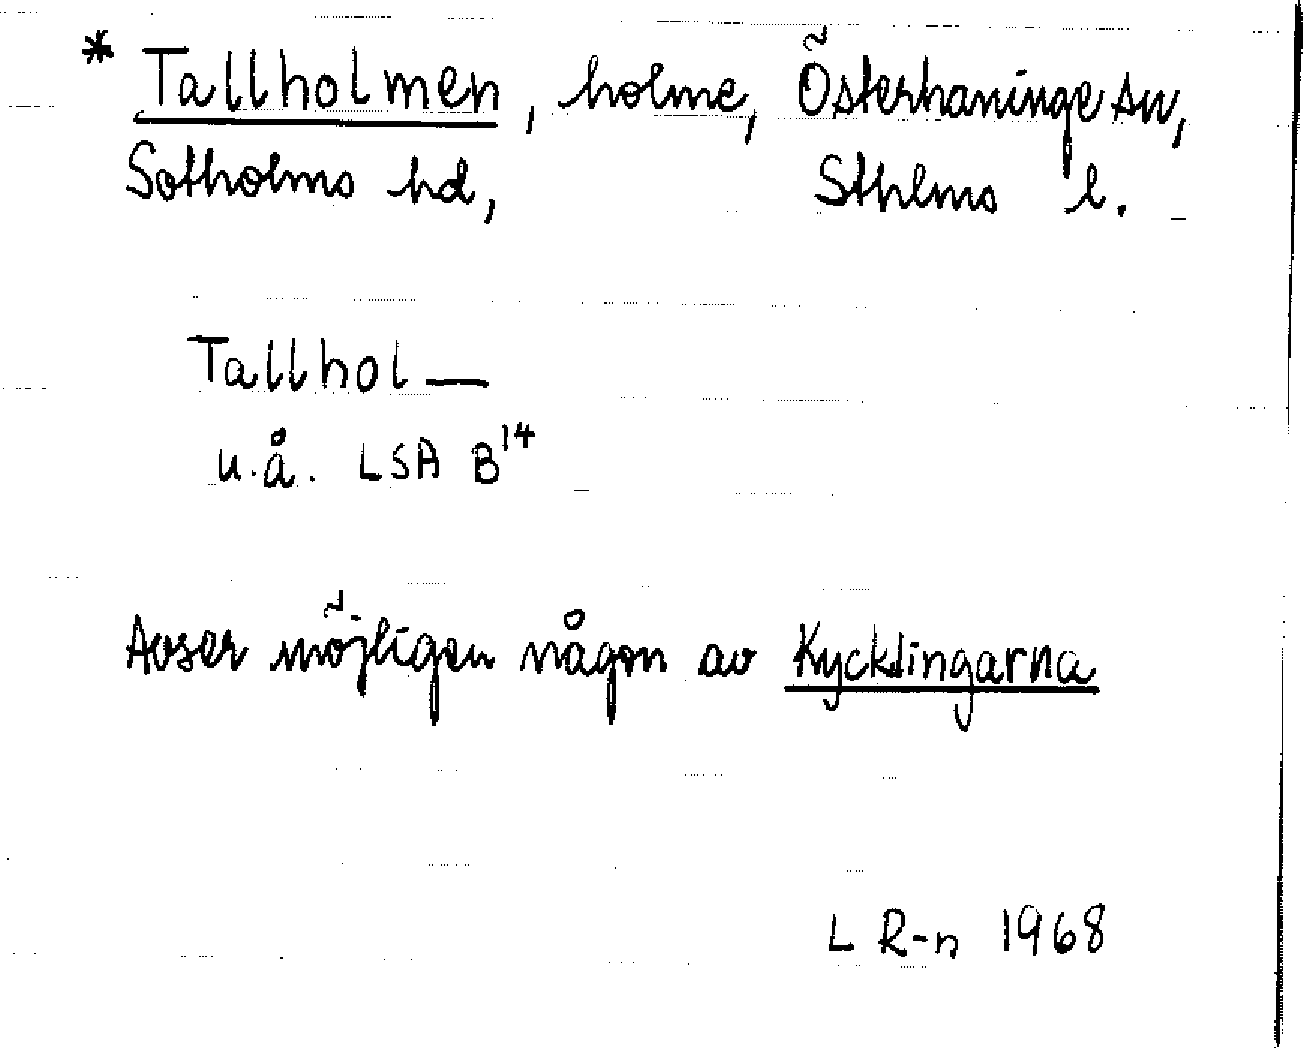 * Tallholmen, holme, Österhaninge sn,
Sotholms hd, Sthlms l.
Tallhol—
u.å. LSA B14
Avser möjligen någon av Kycklingarna
L R-n 1968